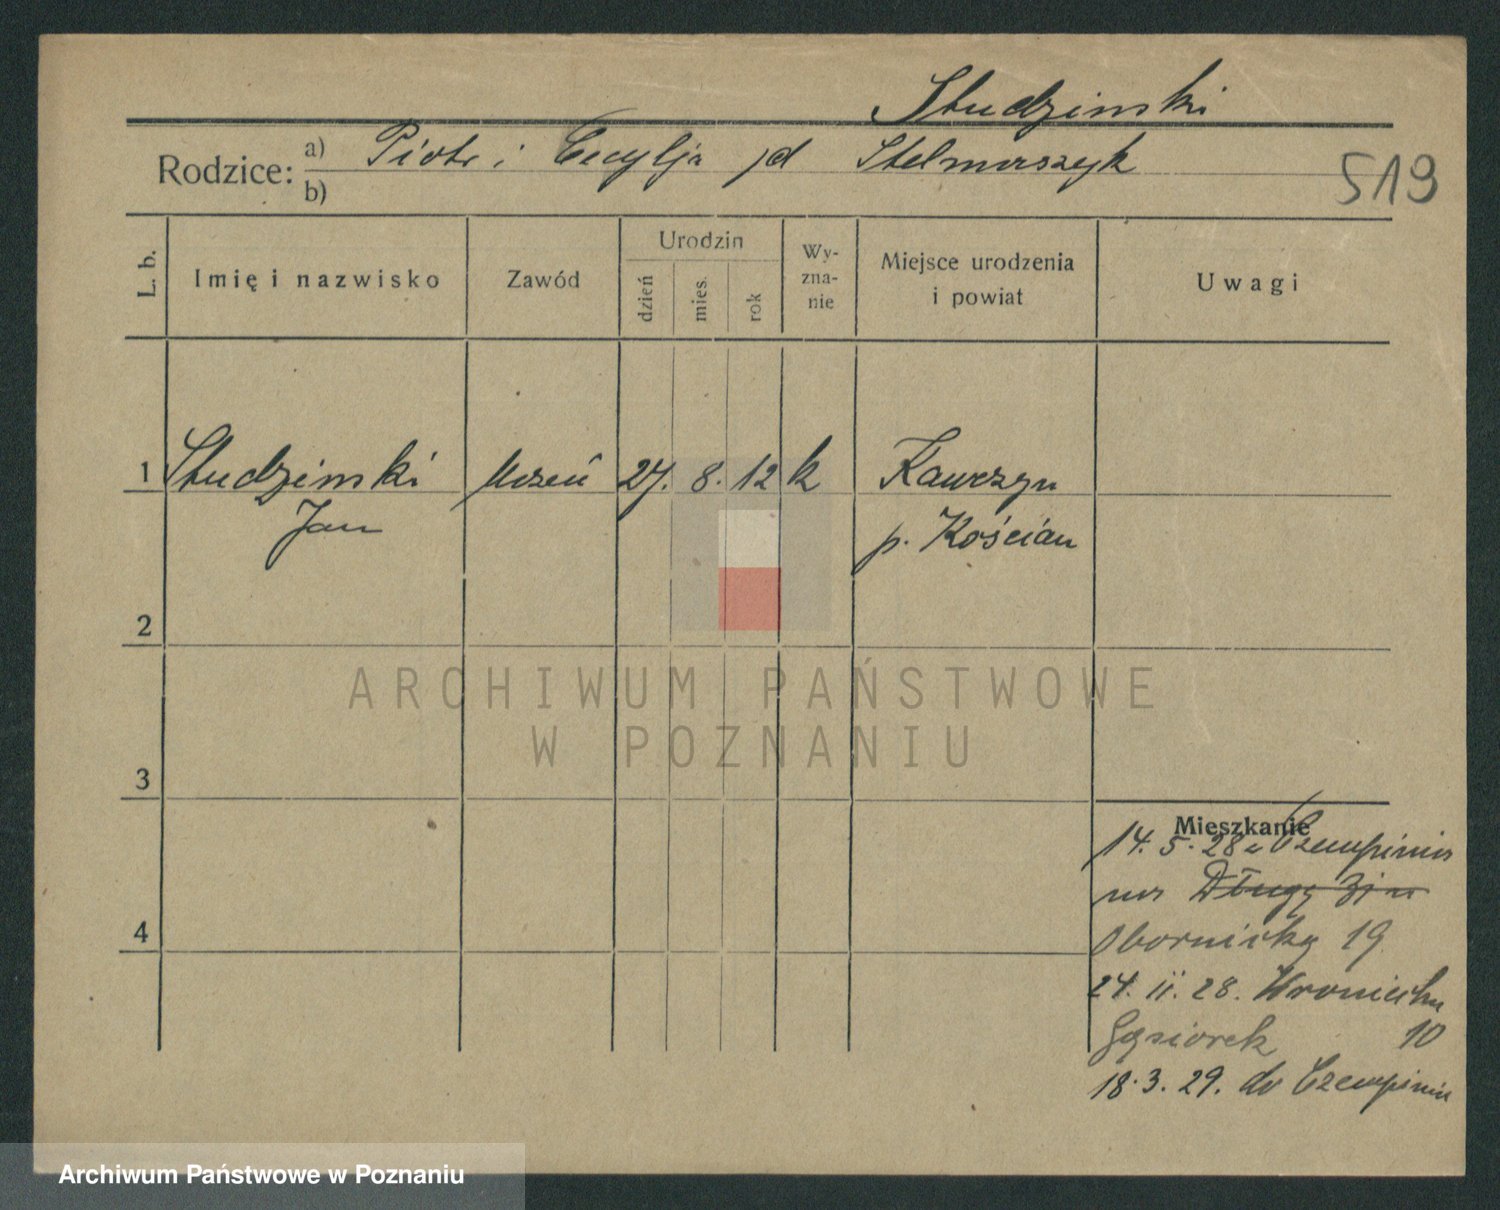 Studzinski
Rodzice: a) Piotr i Cecylja zd Stelmaszyk
b)
519
L. b. Imię i nazwisko Zawód Urodzin dzień mies. rok Wy-zna-nie Miejsce urodzenia i powiat Uwagi
1 Studzinski uczeń 27. 8. 12 k Kawczyn
Jan p. Kościan
2
ARCHIWUM PAŃSTWOWE
W POZNANIU
3
Mieszkanie
14. 5. 28 z Czempinia
na Długą
4
Obornicka 19
24. II. 28. Wroniecka
Gąsiorek 10
18. 3. 29. do Czempinia
Archiwum Państwowe w Poznaniu